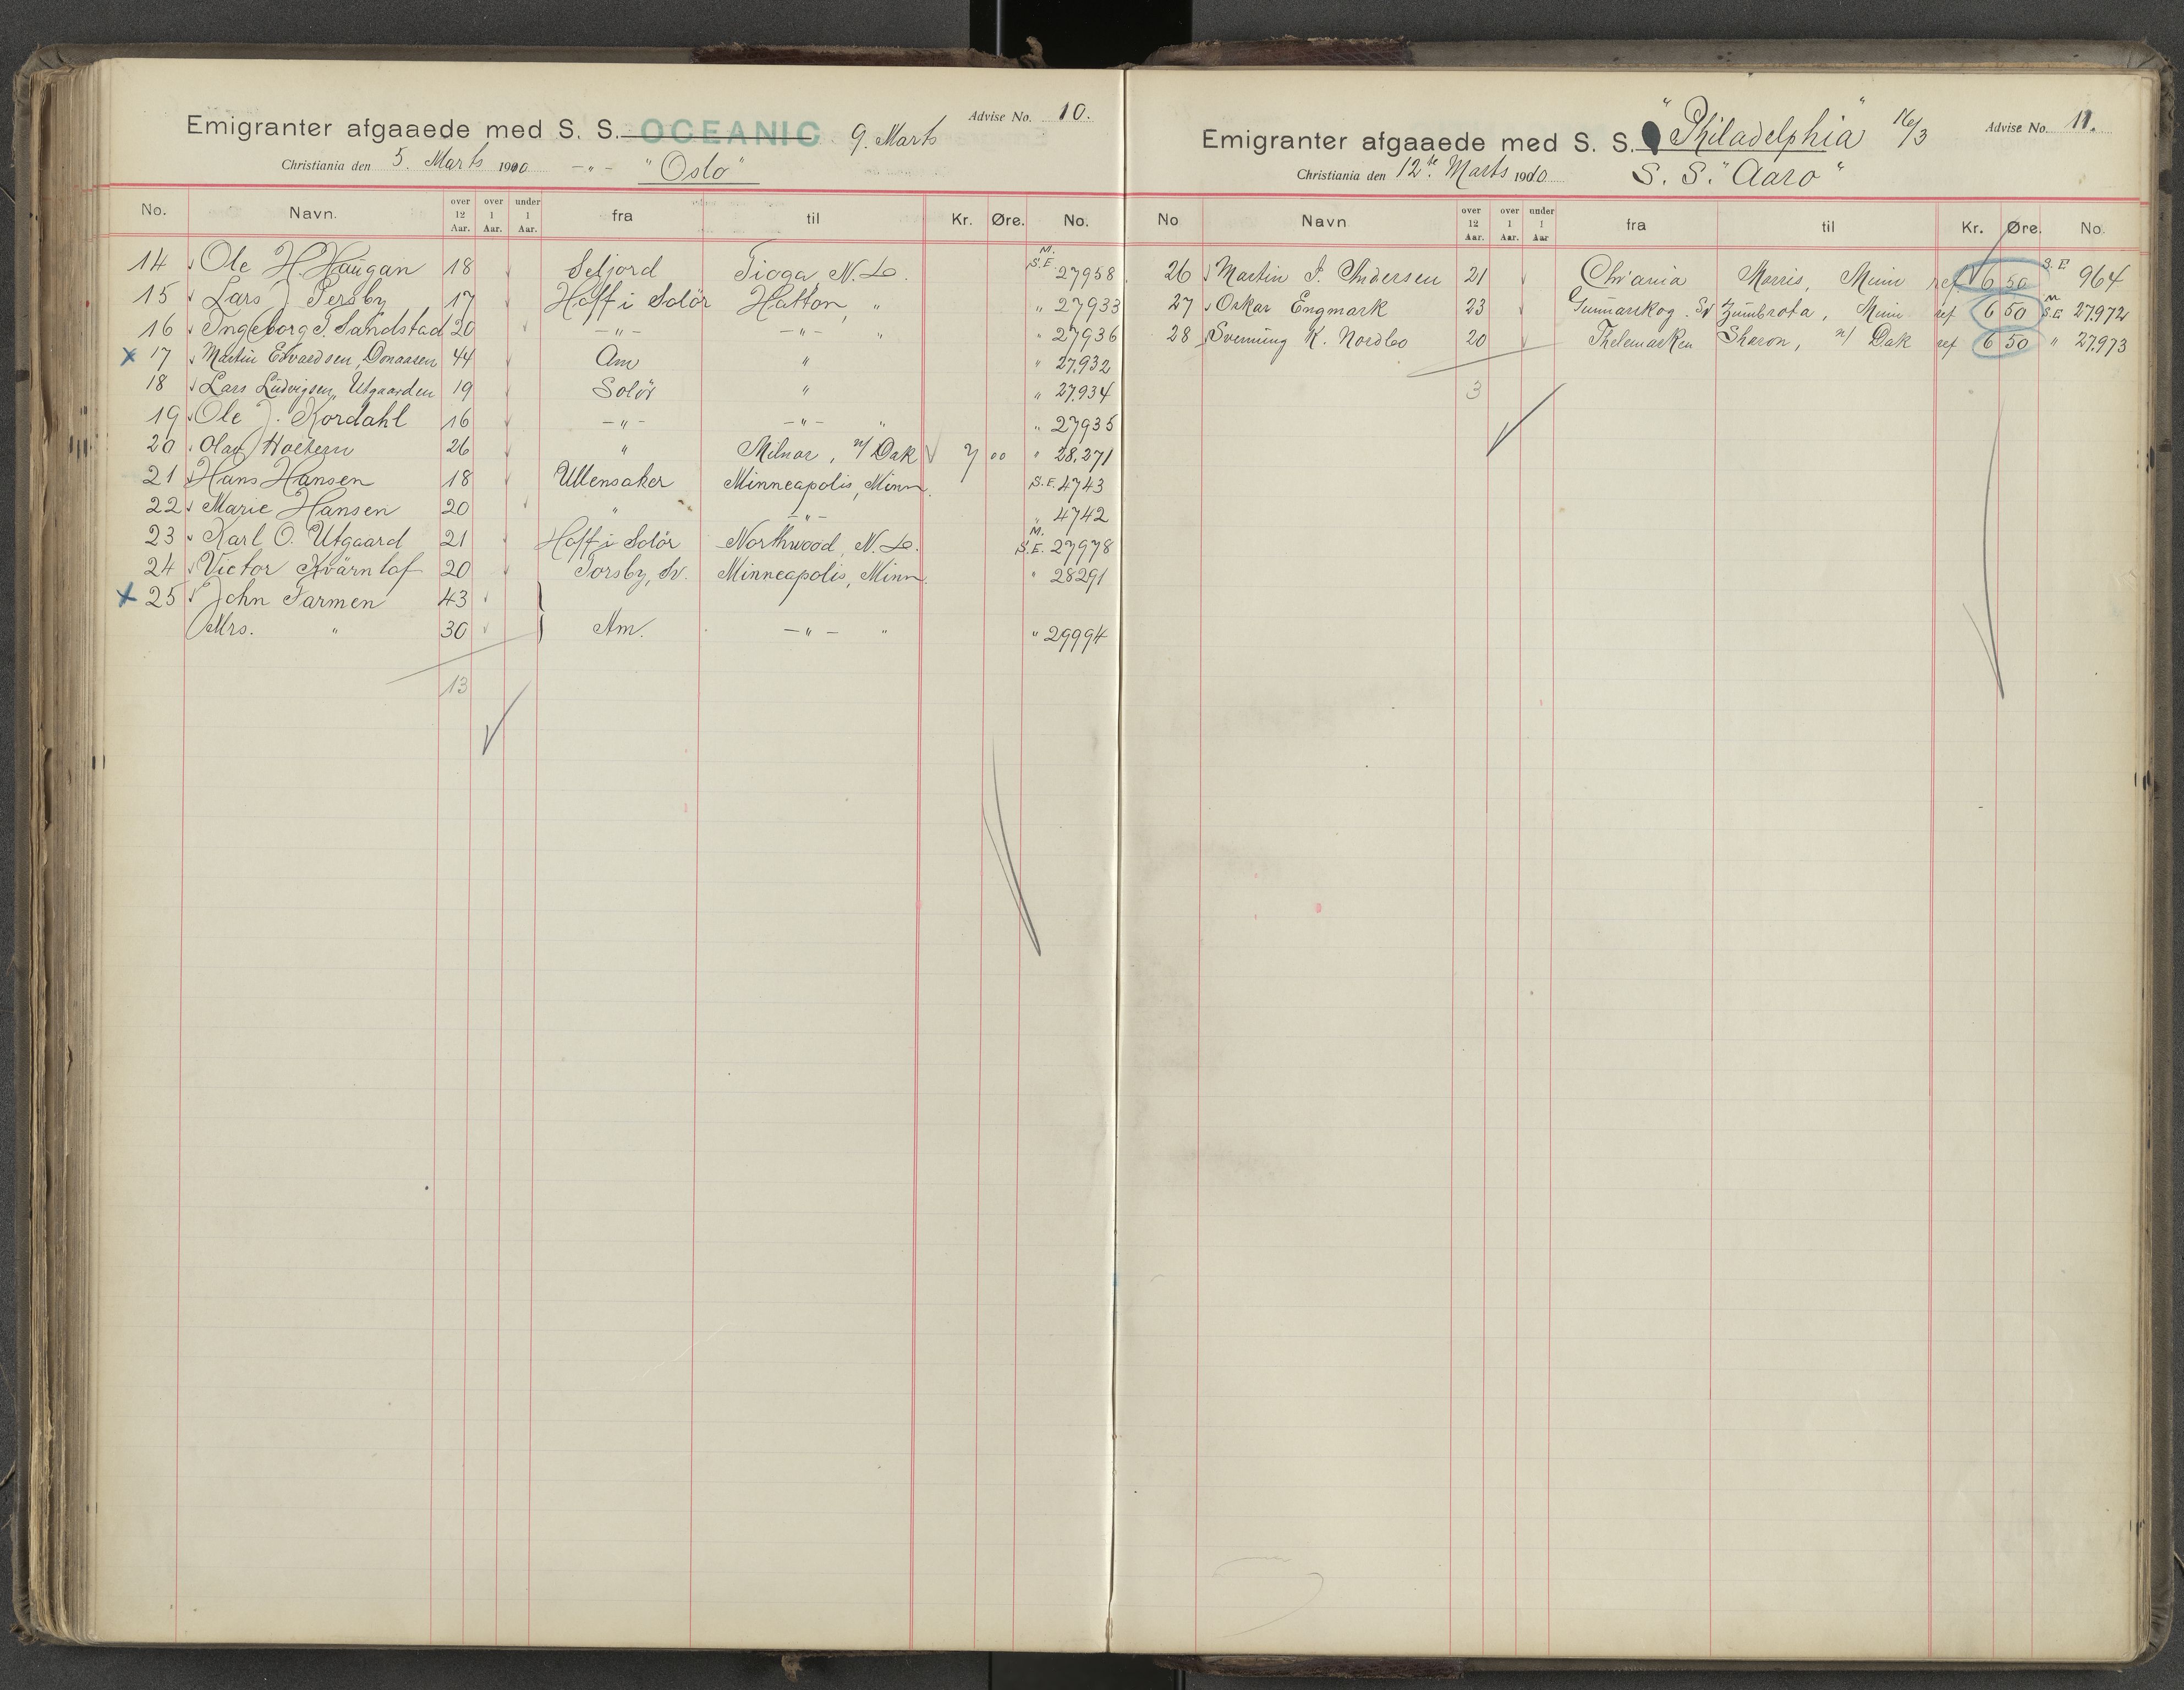 Emigranter afgaaede med S. S. OCEANIC 9. Marts Advise No. 10.
Christiania den 5. Marts 1900 —"— "Oslo"
No. Navn. over 12 Aar. over 1 Aar. under 1 Aar. fra til Kr. Øre. No.
14 Ole H. Haugan 18 Sefjord Tioga, N. D. M. S.E. 27958
15 Lars J. Persby 17 Hoff i Solör Hatton, " " 27933
16 Ingeborg T. Sandstad 20 —"— —"— " " 27936
x 17 Martin Edvardsen, Donaasen 44 Am " " 27.932
18 Lars Ludvigsen, Utgaarden 19 Solör " " 27.934
19 Ole J. Nordahl 16 —"— —"— " " 27935
20 Olaf Holtern 26 " Milnor, n/ Dak 7 00 " 28.271
21 Hans Hansen 18 Ullensaker Minneapolis, Minn. S.E. 4743
22 Marie Hansen 20 " —"— " 4742
23 Karl O. Utgaard 21 Hoff i Solör Northwood, N. D. M. S.E. 27978
24 Victor Kvärnlöf 20 Torsby, Sv. Minneapolis, Minn. " 28291
x 25 John Farmen 43
Mrs. " 30 } Am. —"— " " 29994
13
Emigranter afgaaede med S. S. "Philadelphia" 16/3 Advise No. 11.
Christiania den 12te Marts 1900 S. S. "Aaro"
No Navn over 12 Aar. over 1 Aar. under 1 Aar fra til Kr. Øre. No.
26 Martin I. Andersen 21 Chr'ania Morris, Minn ref. 6 50 S.E. 964
27 Oskar Engmark 23 Gunnarskog. Sv Zumbrota, Minn ref 6 50 M S.E. 27.972
28 Svenning K. Nordbo 20 Thelemarken Sharon, n/ Dak ref 6 50 " 27.973
3